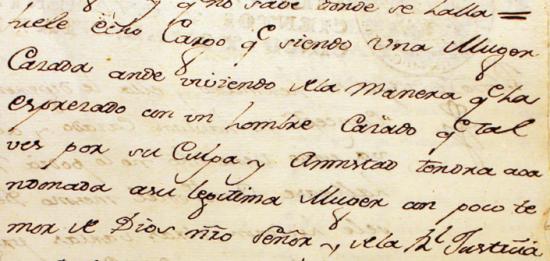 y qe no save donde se halla =
hele echo Cargo qe siendo Una Muger
Cazada ande viviendo de la Manera qe ha
esprezado con un hombre Cazado qe tal
ves por su Culpa y Amistad tendra aca
ndonada a su legitima Muger con poco te
mor de Dios nro Señor, de la Rl Justicia